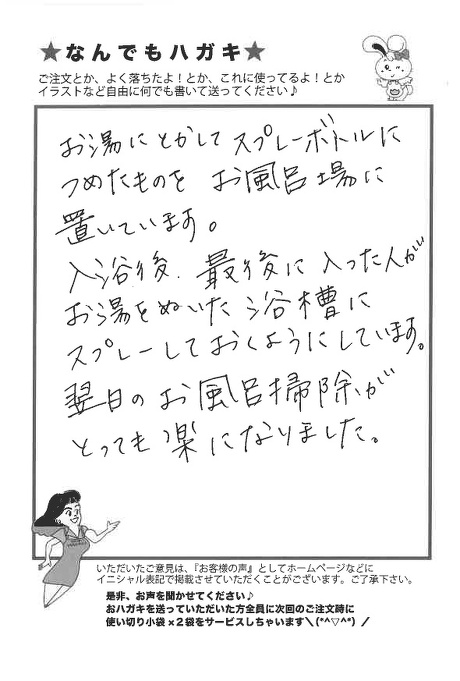 ★なんでもハガキ★
ご注文とか、よく落ちたよ！とか、これに使ってるよ！とか
イラストなど自由に何でも書いて送ってください♪
お湯にとかしてスプレーボトルに
つめたものを お風呂場に
置いています。
入浴後、最後に入った人が
お湯をぬいた浴槽に
スプレーしておくようにしています。
翌日のお風呂掃除が
とっても楽になりました。
いただいたご意見は、『お客様の声』としてホームページなどに
イニシャル表記で掲載させていただくことがございます。ご了承下さい。
是非、お声を聞かせてください♪
おハガキを送っていただいた方全員に次回のご注文時に
使い切り小袋×２袋をサービスしちゃいます＼(*^▽^*)／